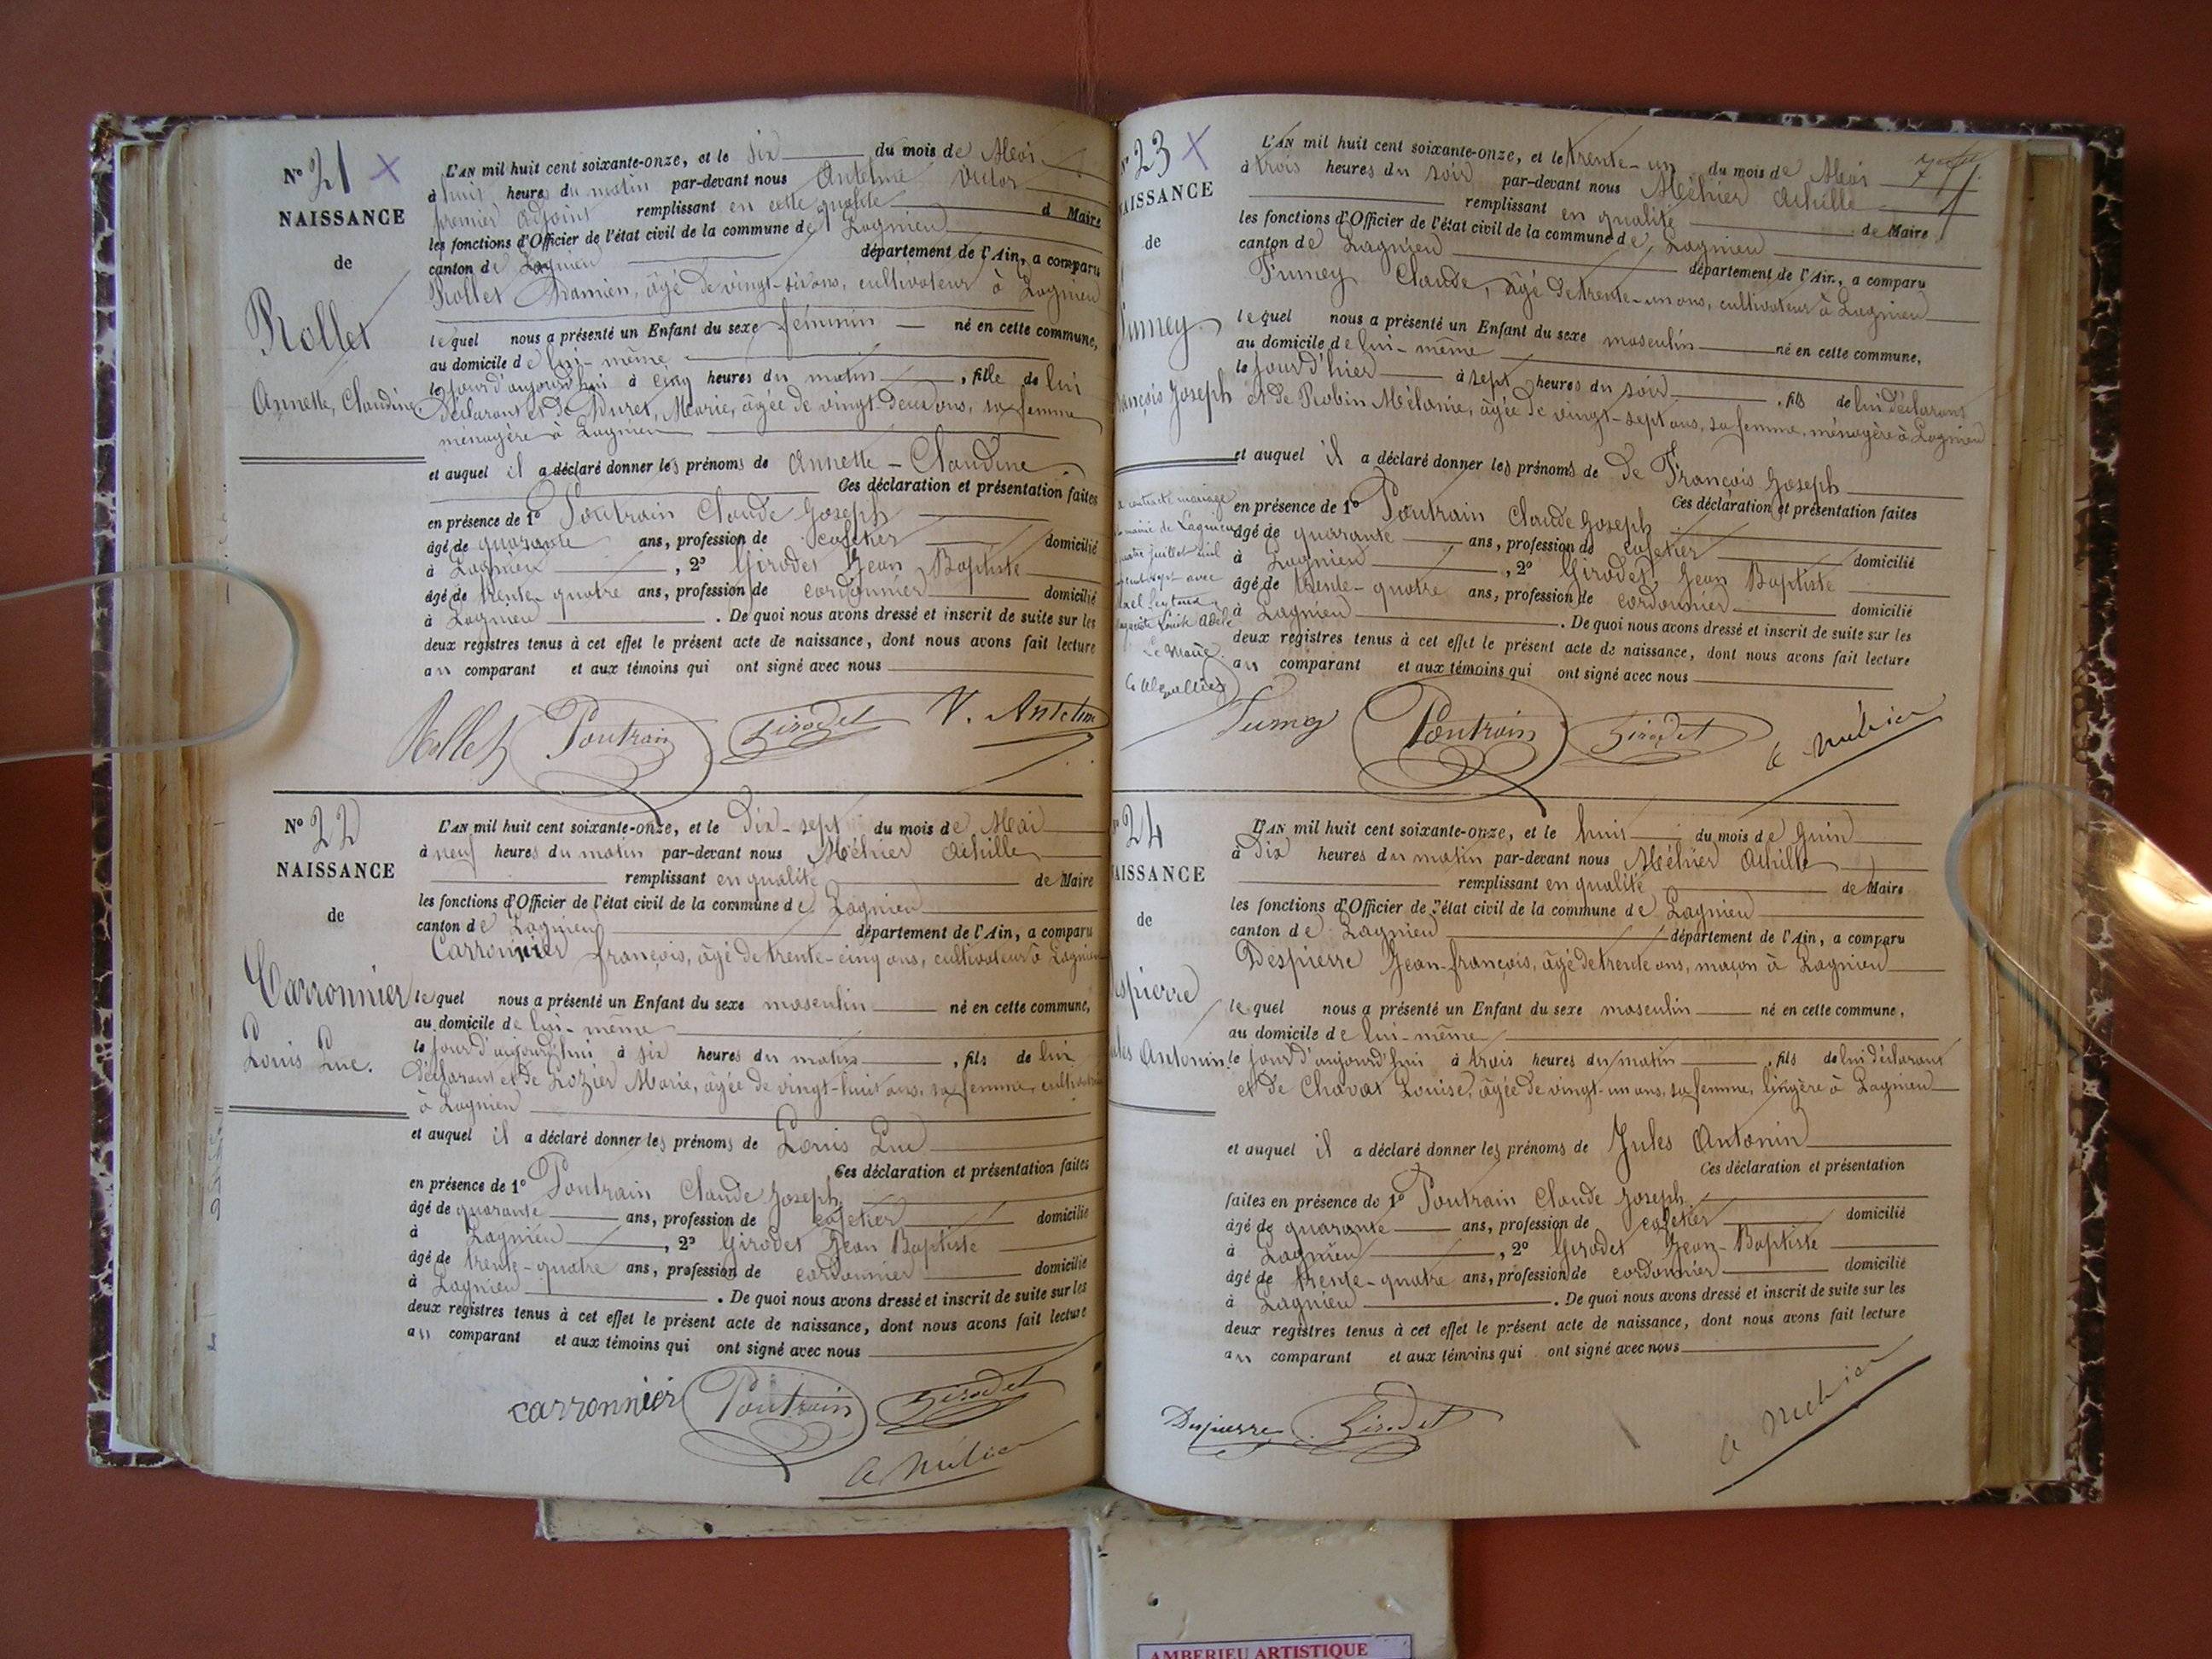 N° 21 X
NAISSANCE
de
Rollet
Annette, Claudine
L'AN mil huit cent soixante-onze, et le six du mois de Mai
à huit heures du matin par-devant nous Antelme Victor
premier adjoint remplissant en cette qualité d Maire
les fonctions d'Officier de l'état civil de la commune de Lagnieu
canton de Lagnieu département de l'Ain, a comparu
Rollet Damien, âgé de vingt-six ans, cultivateur à Lagnieu
lequel nous a présenté un Enfant du sexe féminin né en cette commune,
au domicile de lui-même
le jour d'aujourd'hui à cinq heures du matin, fille de lui
déclarant et de Duret, Marie, âgée de vingt-deux ans, sa femme
ménagère à Lagnieu
et auquel il a déclaré donner les prénoms de Annette-Claudine
Ces déclaration et présentation faites
en présence de 1° Poutrain Claude Joseph
âgé de quarante ans, profession de cafetier domicilié
à Lagnieu, 2° Girodet Jean Baptiste
âgé de trente-quatre ans, profession de cordonnier domicilié
à Lagnieu. De quoi nous avons dressé et inscrit de suite sur les
deux registres tenus à cet effet le présent acte de naissance, dont nous avons fait lecture
au comparant et aux témoins qui ont signé avec nous
Rollet Poutrain Girodet V. Antelme
N° 22
NAISSANCE
de
Carronnier
Louis Luc.
L'AN mil huit cent soixante-onze, et le dix-sept du mois de Mai
à neuf heures du matin par-devant nous Méhier Achille
remplissant en qualité de Maire
les fonctions d'Officier de l'état civil de la commune de Lagnieu
canton de Lagnieu département de l'Ain, a comparu
Carronnier françois, âgé de trente-cinq ans, cultivateur à Lagnieu
lequel nous a présenté un Enfant du sexe masculin né en cette commune,
au domicile de lui-même
le jour d'aujourd'hui à six heures du matin, fils de lui
déclarant et de Lozier Marie, âgée de vingt-huit ans, sa femme,
à Lagnieu
et auquel il a déclaré donner les prénoms de Louis Luc
Ces déclaration et présentation faites
en présence de 1° Poutrain Claude Joseph
âgé de quarante ans, profession de cafetier domicilié
à Lagnieu, 2° Girodet Jean Baptiste
âgé de trente-quatre ans, profession de cordonnier domicilié
à Lagnieu. De quoi nous avons dressé et inscrit de suite sur les
deux registres tenus à cet effet le présent acte de naissance, dont nous avons fait lecture
au comparant et aux témoins qui ont signé avec nous
carronnier Poutrain Girodet
a Méhier
N° 23 X
NAISSANCE
de
Fumey
François Joseph
a contracté mariage
mairie de Lagnieu
quatre juillet mil
avec
Louise Adèle
Le Maire
L'AN mil huit cent soixante-onze, et le trente-un du mois de Mai
à trois heures du soir par-devant nous Méhier Achille
remplissant en qualité de Maire
les fonctions d'Officier de l'état civil de la commune de Lagnieu
canton de Lagnieu département de l'Ain, a comparu
Fumey Claude, âgé de trente-un ans, cultivateur à Lagnieu
lequel nous a présenté un Enfant du sexe masculin né en cette commune,
au domicile de lui-même
le jour d'hier à sept heures du soir, fils de lui déclarant
et de Robin Mélanie, âgée de vingt-sept ans, sa femme, ménagère à Lagnieu
et auquel il a déclaré donner les prénoms de de François Joseph
Ces déclaration et présentation faites
en présence de 1° Poutrain Claude Joseph
âgé de quarante ans, profession de cafetier domicilié
à Lagnieu, 2° Girodet Jean Baptiste
âgé de trente-quatre ans, profession de cordonnier domicilié
à Lagnieu. De quoi nous avons dressé et inscrit de suite sur les
deux registres tenus à cet effet le présent acte de naissance, dont nous avons fait lecture
au comparant et aux témoins qui ont signé avec nous
Fumey Poutrain Girodet a Méhier
N° 24
NAISSANCE
de
Despierre
Jules Antonin.
L'AN mil huit cent soixante-onze, et le huit du mois de Juin
à dix heures du matin par-devant nous Méhier Achille
remplissant en qualité de Maire
les fonctions d'Officier de l'état civil de la commune de Lagnieu
canton de Lagnieu département de l'Ain, a comparu
Despierre Jean-françois, âgé de trente ans, maçon à Lagnieu
lequel nous a présenté un Enfant du sexe masculin né en cette commune,
au domicile de lui-même
le jour d'aujourd'hui à trois heures du matin, fils de lui déclarant
et de Chavat Louise, âgée de vingt-un ans, sa femme, lingère à Lagnieu
et auquel il a déclaré donner les prénoms de Jules Antonin
Ces déclaration et présentation
faites en présence de 1° Poutrain Claude Joseph
âgé de quarante ans, profession de cafetier domicilié
à Lagnieu, 2° Girodet Jean-Baptiste
âgé de trente-quatre ans, profession de cordonnier domicilié
à Lagnieu. De quoi nous avons dressé et inscrit de suite sur les
deux registres tenus à cet effet le présent acte de naissance, dont nous avons fait lecture
au comparant et aux témoins qui ont signé avec nous
Despierre Girodet a Méhier
AMBERIEU ARTISTIQUE